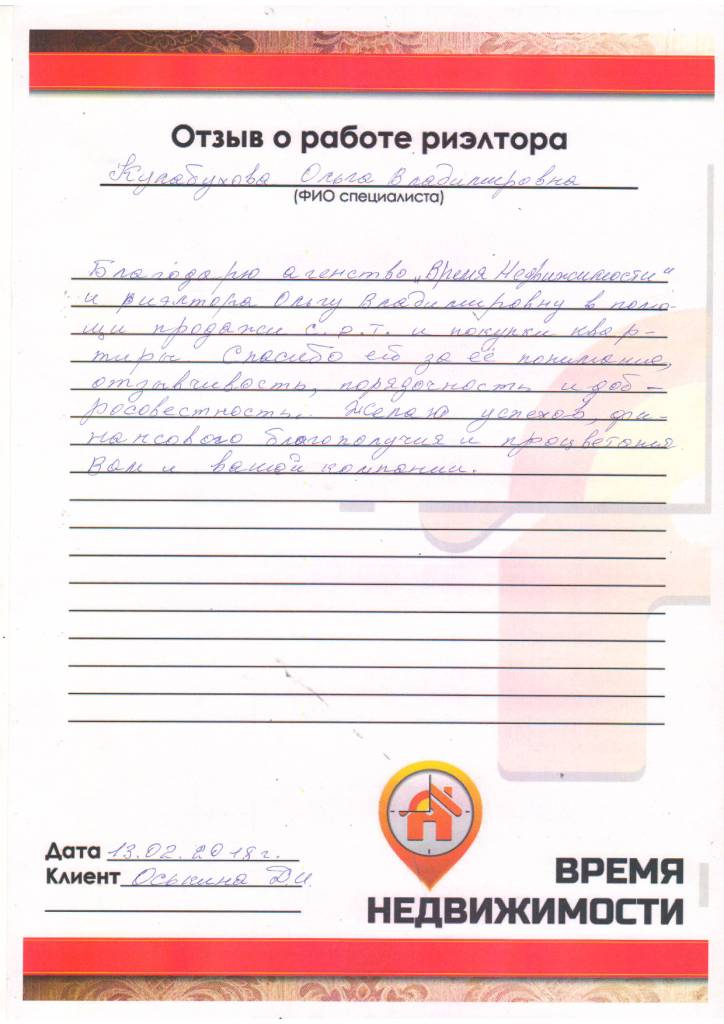 Отзыв о работе риэлтора
Кулабухова Ольга Владимировна
(ФИО специалиста)
Благодарю агенство „Время Недвижимости“
и риялтора Ольгу Владимировну в помо-
щи продажи с.о.т. и покупки квар-
тиры. Спасибо ей за её понимание,
отзывчивость, порядочность и доб-
росовестность. Желаю успехов, фи-
нансового благополучия и процветания
Вам и вашей компании.
Дата 13.02.2018г.
Клиент Оськина Д.И.
ВРЕМЯ
НЕДВИЖИМОСТИ